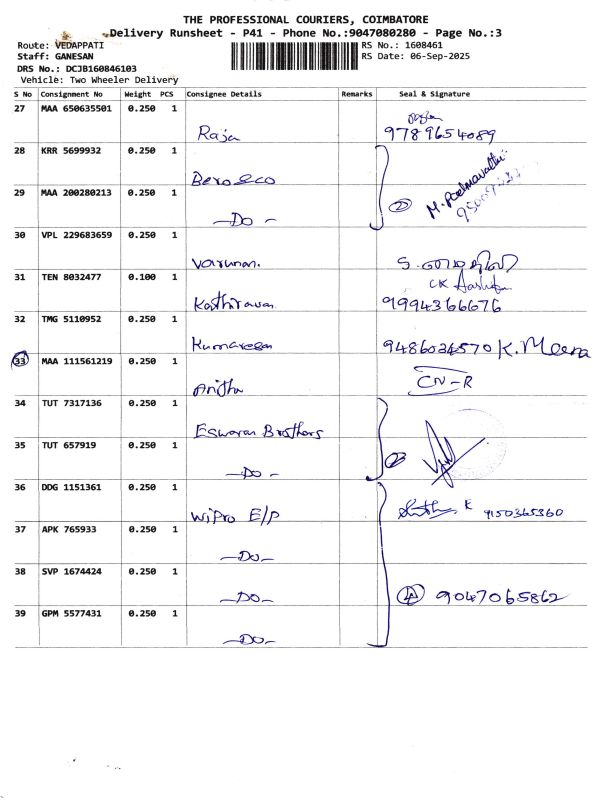 THE PROFESSIONAL COURIERS, COIMBATORE
Delivery Runsheet - P41 - Phone No.:9047080280 - Page No.:3
Route: VEDAPPATI
RS No.: 1608461
Staff: GANESAN
RS Date: 06-Sep-2025
DRS No.: DCJB160846103
Vehicle: Two Wheeler Delivery
S No Consignment No Weight PCS Consignee Details Remarks Seal & Signature
27 MAA 650635501 0.250 1
Raja 9789654089
28 KRR 5699932 0.250 1
29 MAA 200280213 0.250 1
-Do- 2 M. Padmavathi
30 VPL 229683659 0.250 1
Varunan.
31 TEN 8032477 0.100 1
Kathiravan 9994366676
32 TMG 5110952 0.250 1
Kumaresan 9486034570 K. Meena
33 MAA 111561219 0.250 1
Anitha CN-R
34 TUT 7317136 0.250 1
Eswaran Brothers
35 TUT 657919 0.250 1
-Do- 2
36 DDG 1151361 0.250 1
Wipro E/P K 9150365360
37 APK 765933 0.250 1
-Do-
38 SVP 1674424 0.250 1
-Do- 4 9047065862
39 GPM 5577431 0.250 1
-Do-